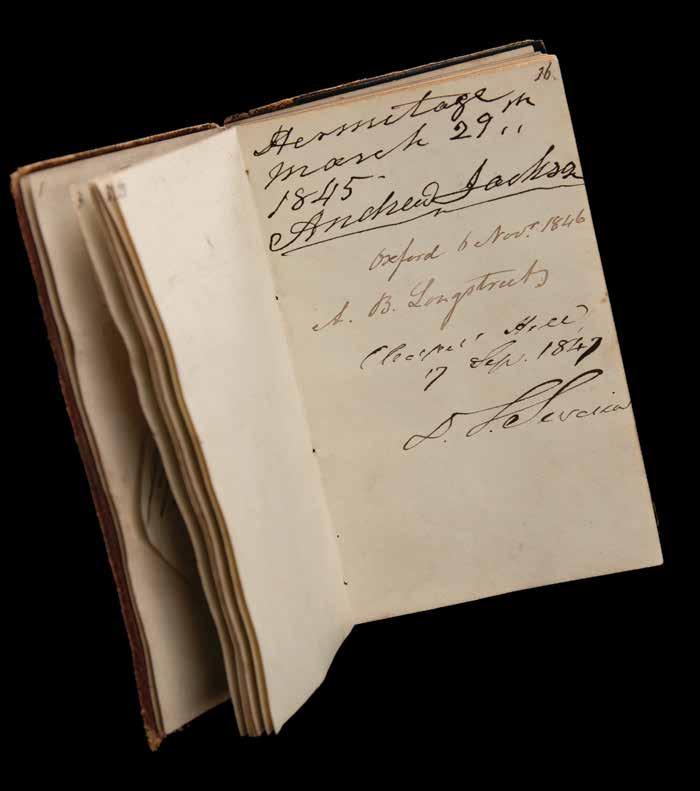 36.
Hermitage
March 29th
1845-
Andrew Jackson
Oxford 6 Novr. 1846
A. B. Longstreet
Chapel Hill
17 Sep. 1847
D. L. Swain